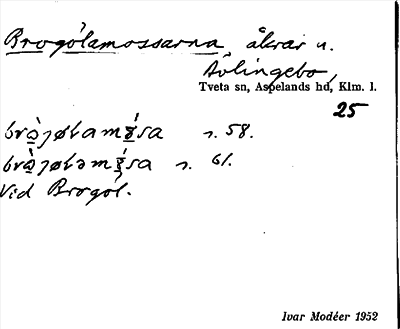 Brogölamossarna, åkrar u.
Åvlingebo,
Tveta sn, Aspelands hd, Klm. l.
25
s. 58.
s. 61.
Vid Brogöl.
Ivar Modéer 1952